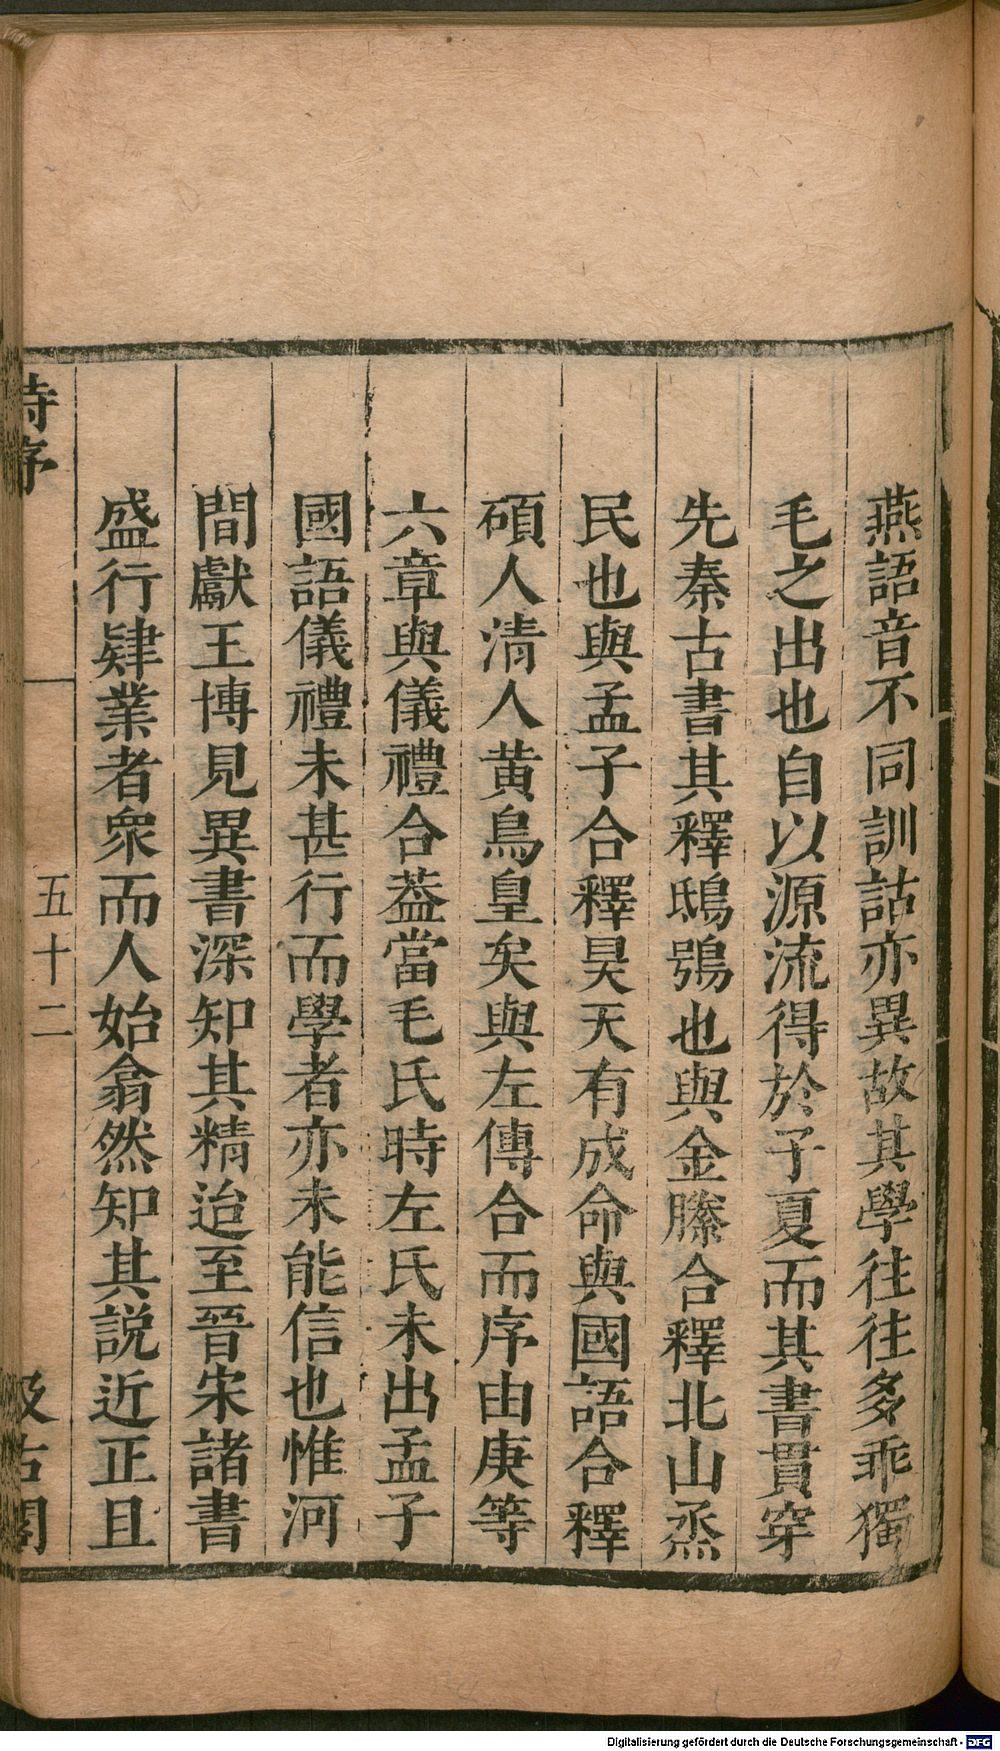 燕語音不同訓詁亦異故其學往往多乖獨
毛之出也自以源流得於子夏而其書貫穿
先秦古書其釋鴟鴞也與金縢合釋北山烝
民也與孟子合釋昊天有成命與國語合釋
碩人清人黃鳥皇矣與左傳合而序由庚等
六章與儀禮合葢當毛氏時左氏未出孟子
國語儀禮未甚行而學者亦未能信也惟河
間獻王博見異書深知其精迨至晉宋諸書
盛行肄業者衆而人始翕然知其説近正且
詩序
五十二
汲古閣
Digitalisierung gefördert durch die Deutsche Forschungsgemeinschaft - DFG